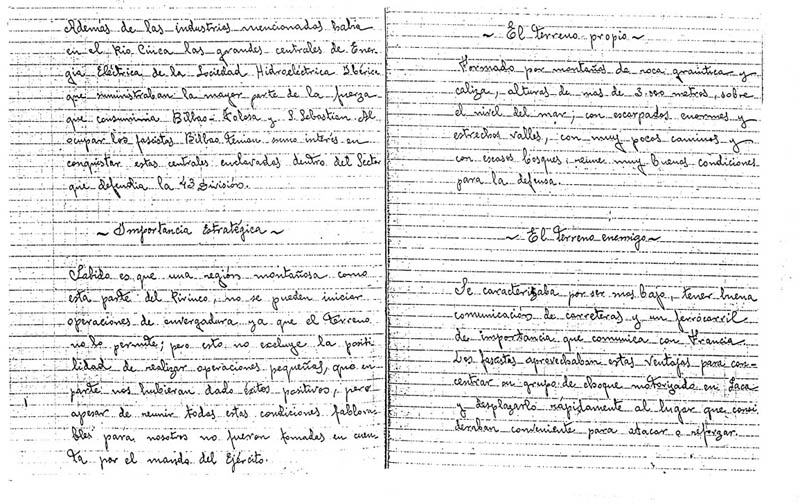 Además de las industrias mencionadas había
en el Rio Cinca las grandes centrales de Ener-
gia Eléctrica de la Sociedad Hidroeléctrica Ibérica
que suministraban la mayor parte de la fuerza
que consumia Bilbao-Tolosa y S. Sebastian. Al
ocupar los fasistas Bilbao tenian sumo interés en
conquistar estas centrales enclavadas dentro del Sector
que defendia la 43 División.
~ Importancia Estratégica ~
Sabido es que una región montañosa como
esta parte del Pirineo, no se pueden iniciar
operaciones de envergadura ya que el terreno
no lo permite; pero esto no excluye la posibi-
lidad de realizar operaciones pequeñas, que en
parte nos hubieran dado éxitos positivos, pero
apesar de reunir todas estas condiciones fablora-
bles para nosotros no fueron tomadas en cuen-
ta por el mando del Ejército.
~ El terreno propio ~
Formado por montañas de roca granitica y
caliza, alturas de mas de 3.000 metros, sobre
el nivel del mar; con escarpados enormes y
estrechos valles, con muy pocos caminos y
con escasos bosques, reune muy buenas condiciones
para la defensa.
~ El terreno enemigo ~
Se caracterizaba por ser mas bajo, tener buena
comunicación de carreteras y un ferrócarril
de importancia que comunica con Francia.
Los fasistas aprovechaban estas ventajas para con-
centrar su grupo de choque motorizado en Jaca
y desplazarlo rápidamente al lugar que consi-
deraban conveniente para atacar o reforzar.